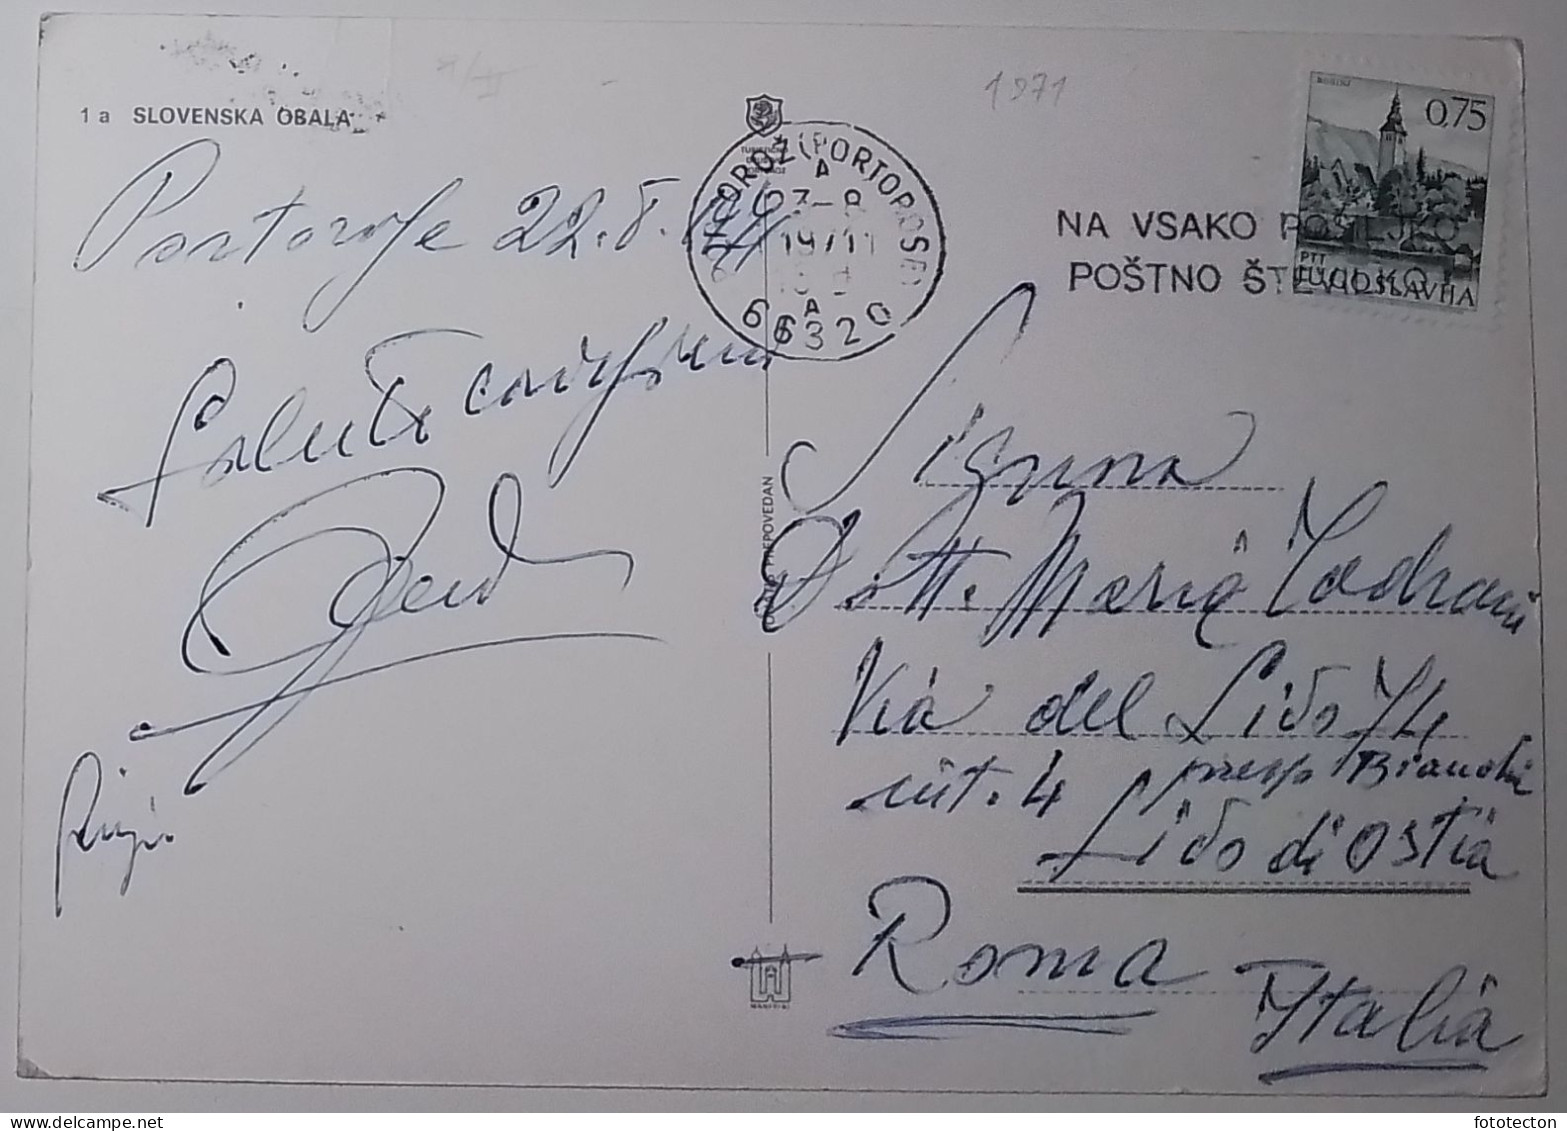 1 a SLOVENSKA OBALA
1971
Portorose 22.8.71
Saluti cordialissimi
Luigi
PORTOROŽ (PORTOROSE)
A
23-8
1971
A
66320
NA VSAKO POŠILJKO
POŠTNO ŠTEVILKO!
0,75
PTT
JUGOSLAVIJA
PREPOVEDAN
Sig.na
Dott. Maria
Via del Lido 74
int. 4 presso Bianchi
Lido di Ostia
Roma
Italia
fototecton